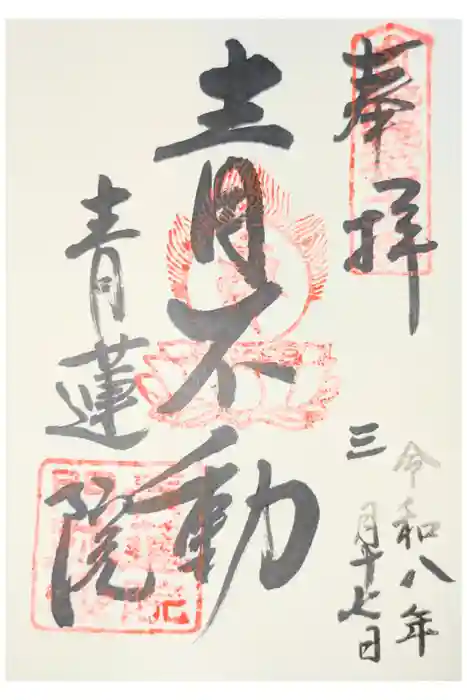 奉拝
令和八年
三月十七日
青不動
青蓮院